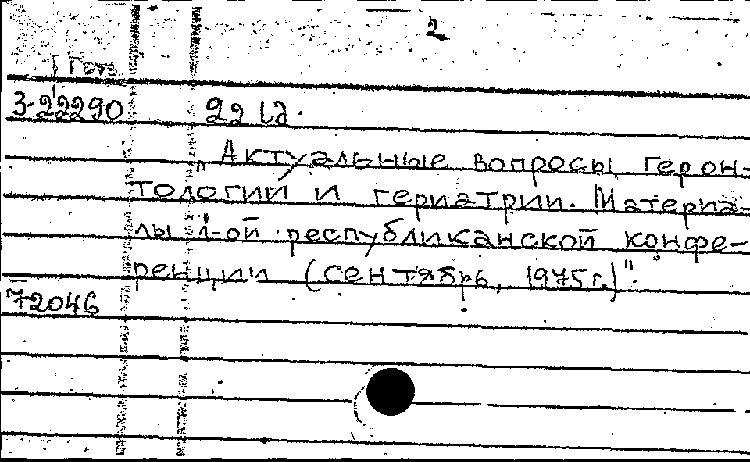 2
3-22290 22 с.
„Актуальные вопросы герон-
тологии и гериатрии. Материа-
лы 1-ой республиканской конфе-
ренции (сентябрь, 1975 г.)".
72046